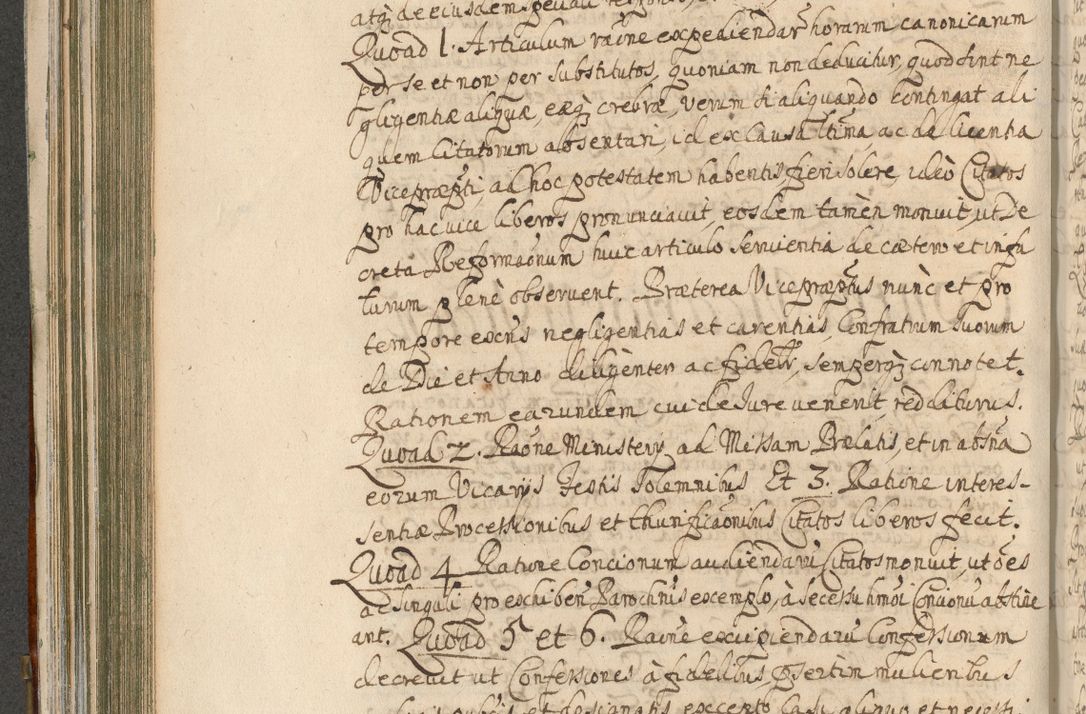 atq de eiusdem
Quoad 1. Articulum raõne expediendar horarum canonicarum
per se et non per substitutos, quoniam non deducitur, quod sint ne
gligentiæ aliquæ, eæq crebræ, verum si aliquando contingat ali
quem Citatorum absentari, id ex causa ltĩma, ac de licentia
Vicepræpti, ad hoc potestatem habentis, fieri solere, ideò Citatos
pro hac vice liberos pronunciavit, eosdem tamèn monuit, ut De
creta Reformaõnum huic articulo servientia de cætero et in fu
turum plenè observent. Præterea Vicepræptus nunc et pro
tempore exñs negligentias et carentias Confratrum suorum
de Die et Anno diligenter ac fidelr, semperq connotet.
Rationem earundem cui de Jure venerit redditurus.
Quoad 2. Raõne Ministerÿ ad Missam Prælatis, et in absña
eorum Vicarÿs festis solemnibus Et 3. Ratione interes-
sentiæ Processionibus et thurificaõnibus Citatos liberos fecit.
Quoad 4 Ratione Concionum audiendaru Citatos monuit, ut oẽs
ac singuli pro exhiben Parochnis exemplo, à secessu hmõi Concionũ abstine
ant. Quoad 5 et 6. Raõne excipiendarũ Confessionum
decrevit ut Confessiones à fidelibus psertim mulieribus
et designatis excepto casu aliquo et necessi